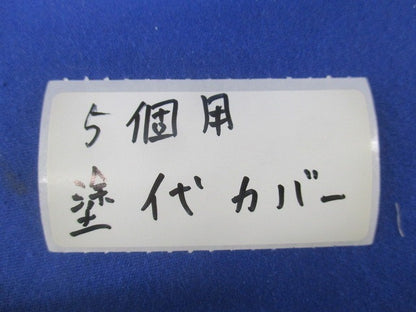 5個用
塗代カバー